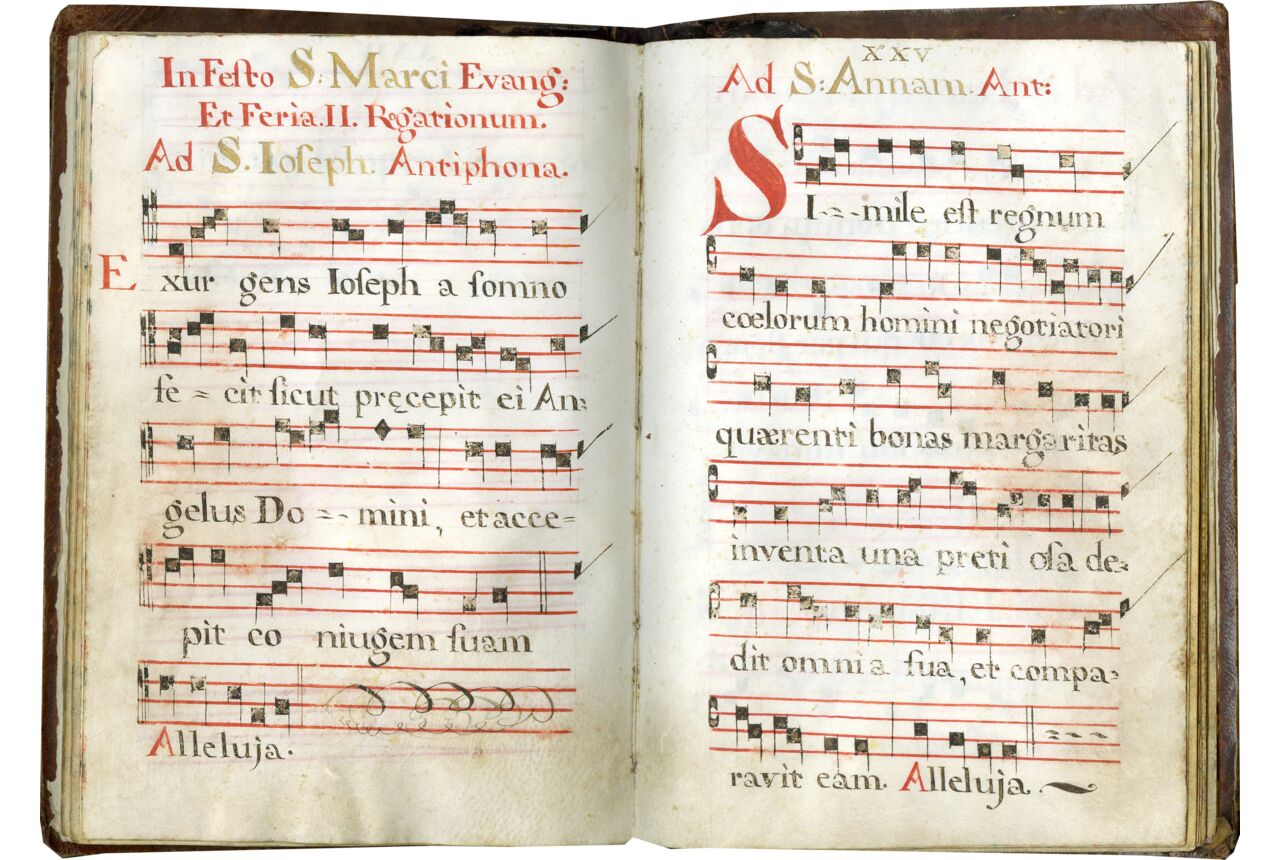 In Festo S. Marci Evang:
Et Feria. II. Rogationum.
Ad S. Ioseph. Antiphona.
Exur gens Ioseph a somno
fe = cit sicut pręcepit ei An=
gelus Do = - mini, et acce=
pit co niugem suam
Alleluja.
XXV
Ad S: Annam. Ant:
SI - = - mile est regnum
cœlorum homini negotiatori
quærenti bonas margaritas
inventa una preti osa de=
dit omnia sua, et compa=
ravit eam. Alleluja.